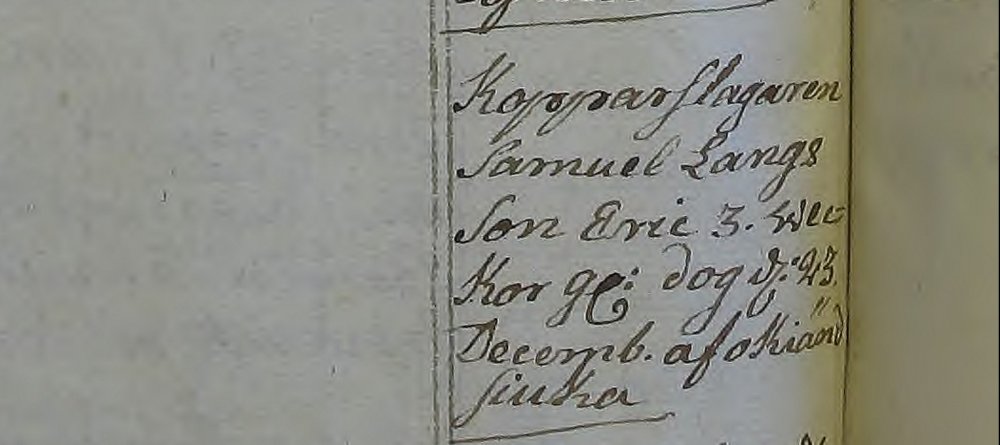 Kopparslagaren
Samuel Langs
Son Eric 3. wec-
kor gl: dog d: 23.
Decemb. af okiänd
siuka